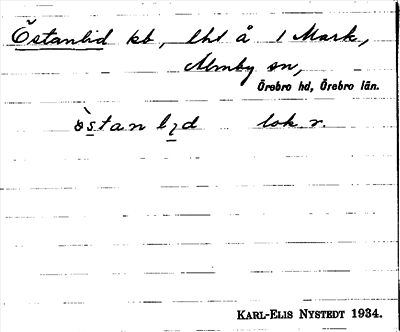 Östanlid kb, lht å 1 Mark,
Almby sn,
Örebro hd, Örebro län.
östan lid lok r.
KARL-ELIS NYSTEDT 1934.